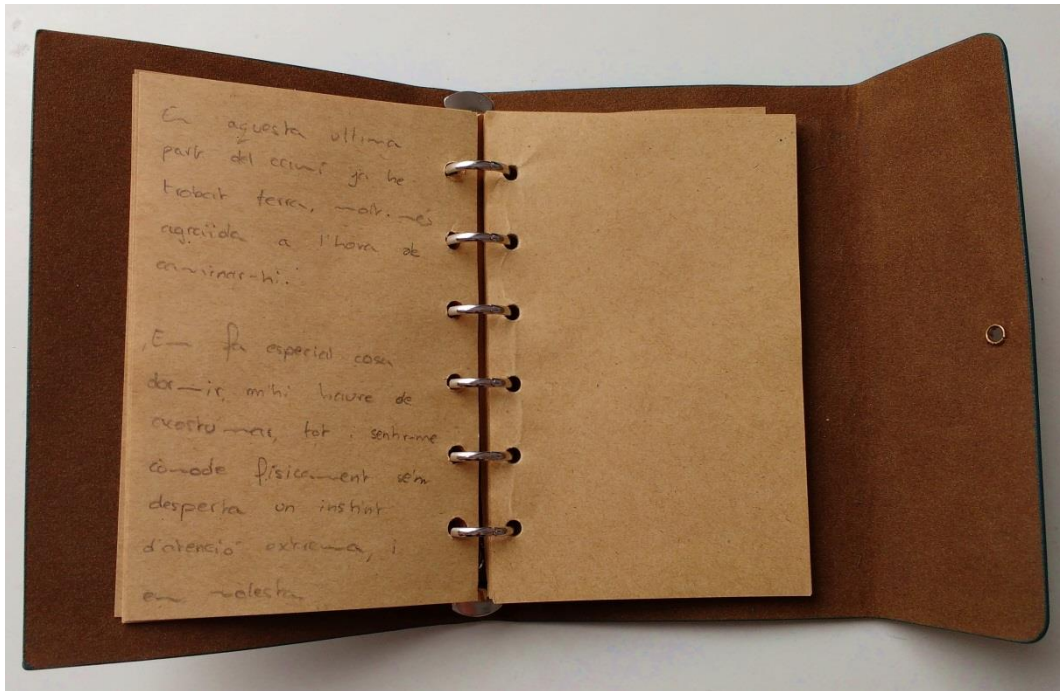 En aquesta ultima
part del camí ja he
trobat terra, molt més
agraïida a l'hora de
caminar-hi.
Em fa especial cosa
dormir, m'hi hauré de
acostumar, tot i sentir-me
còmode físicament se'm
desperta un instint
d'atenció extrema, i
em molesta